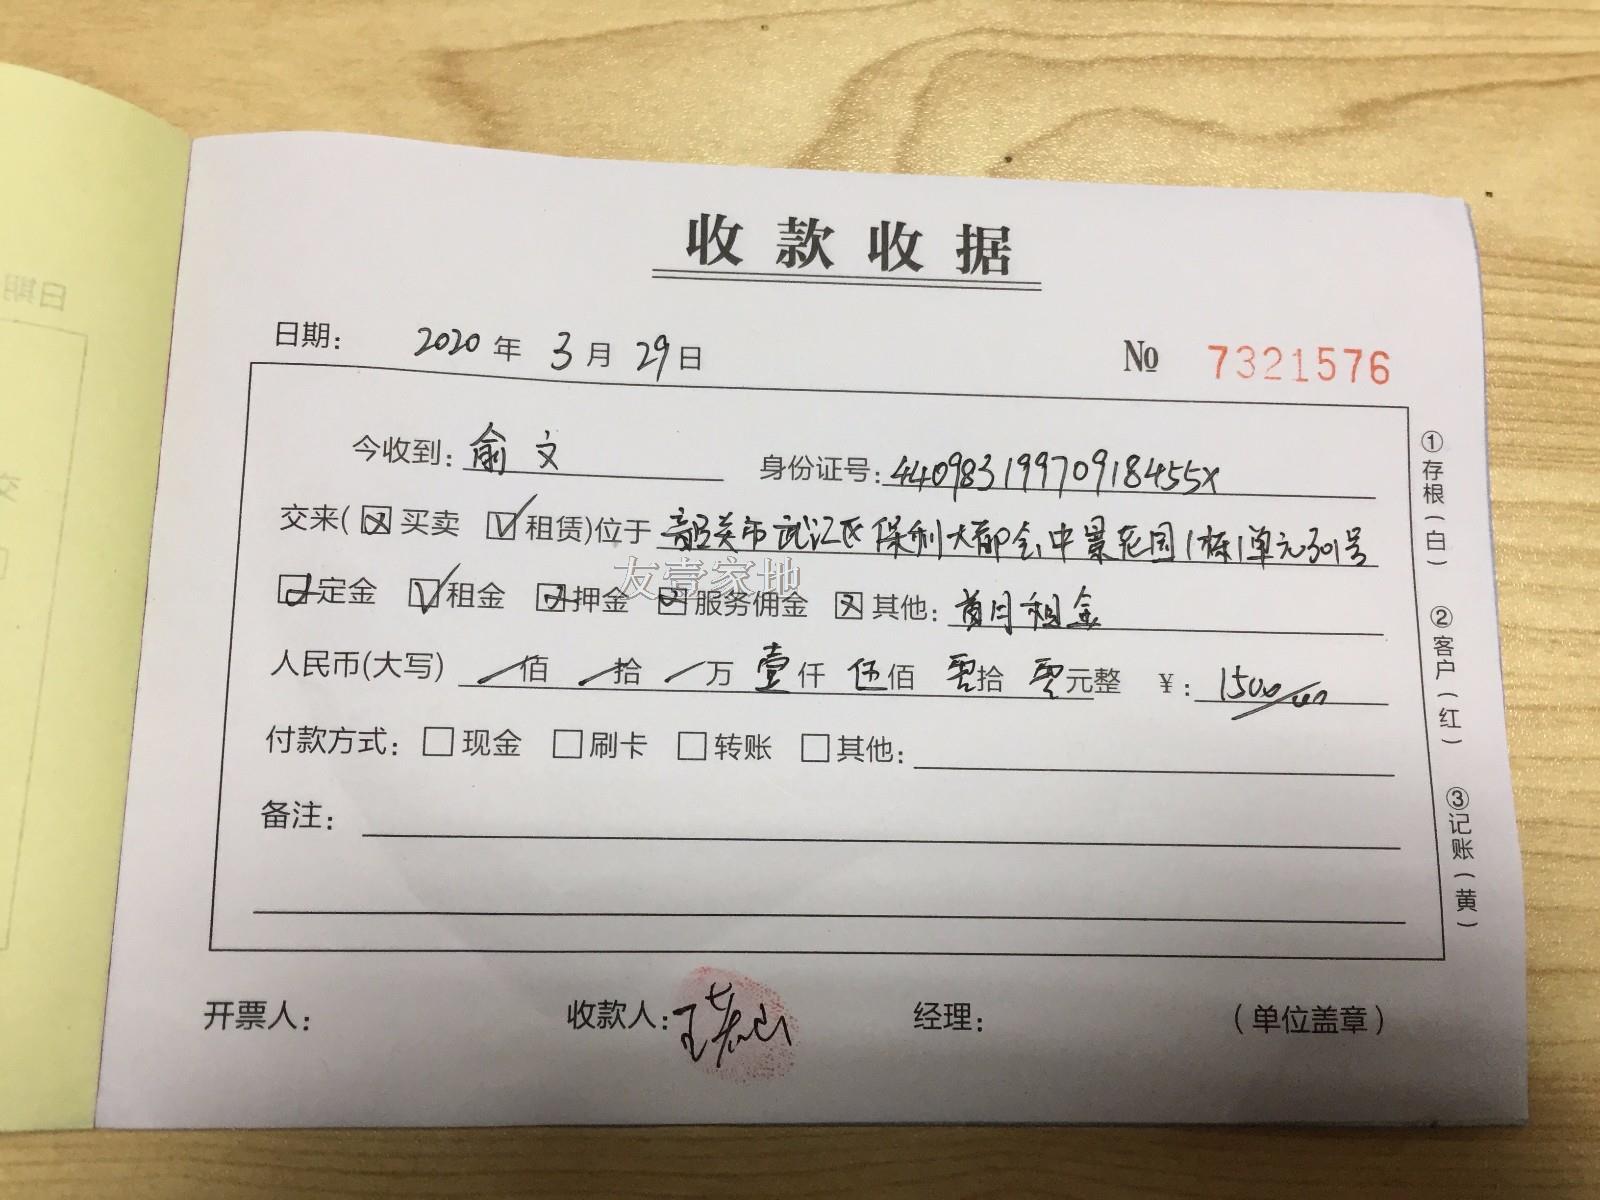 收款收据
日期: 2020年3月29日 № 7321576
今收到:俞文 身份证号:44098319970918455x
交来(☒买卖 ☑租赁)位于 韶关市武江区保利大都会中景花园1栋1单元301号
定金 ☑租金 押金 服务佣金 ☒其他:首月租金
人民币(大写) /佰 /拾 /万 壹仟 伍佰 零拾 零元整 ¥: 1500
付款方式: □现金 □刷卡 □转账 □其他:
备注:
开票人: 收款人: 王 经理: (单位盖章)
①存根(白) ②客户(红) ③记账(黄)
友壹家地
日期
交